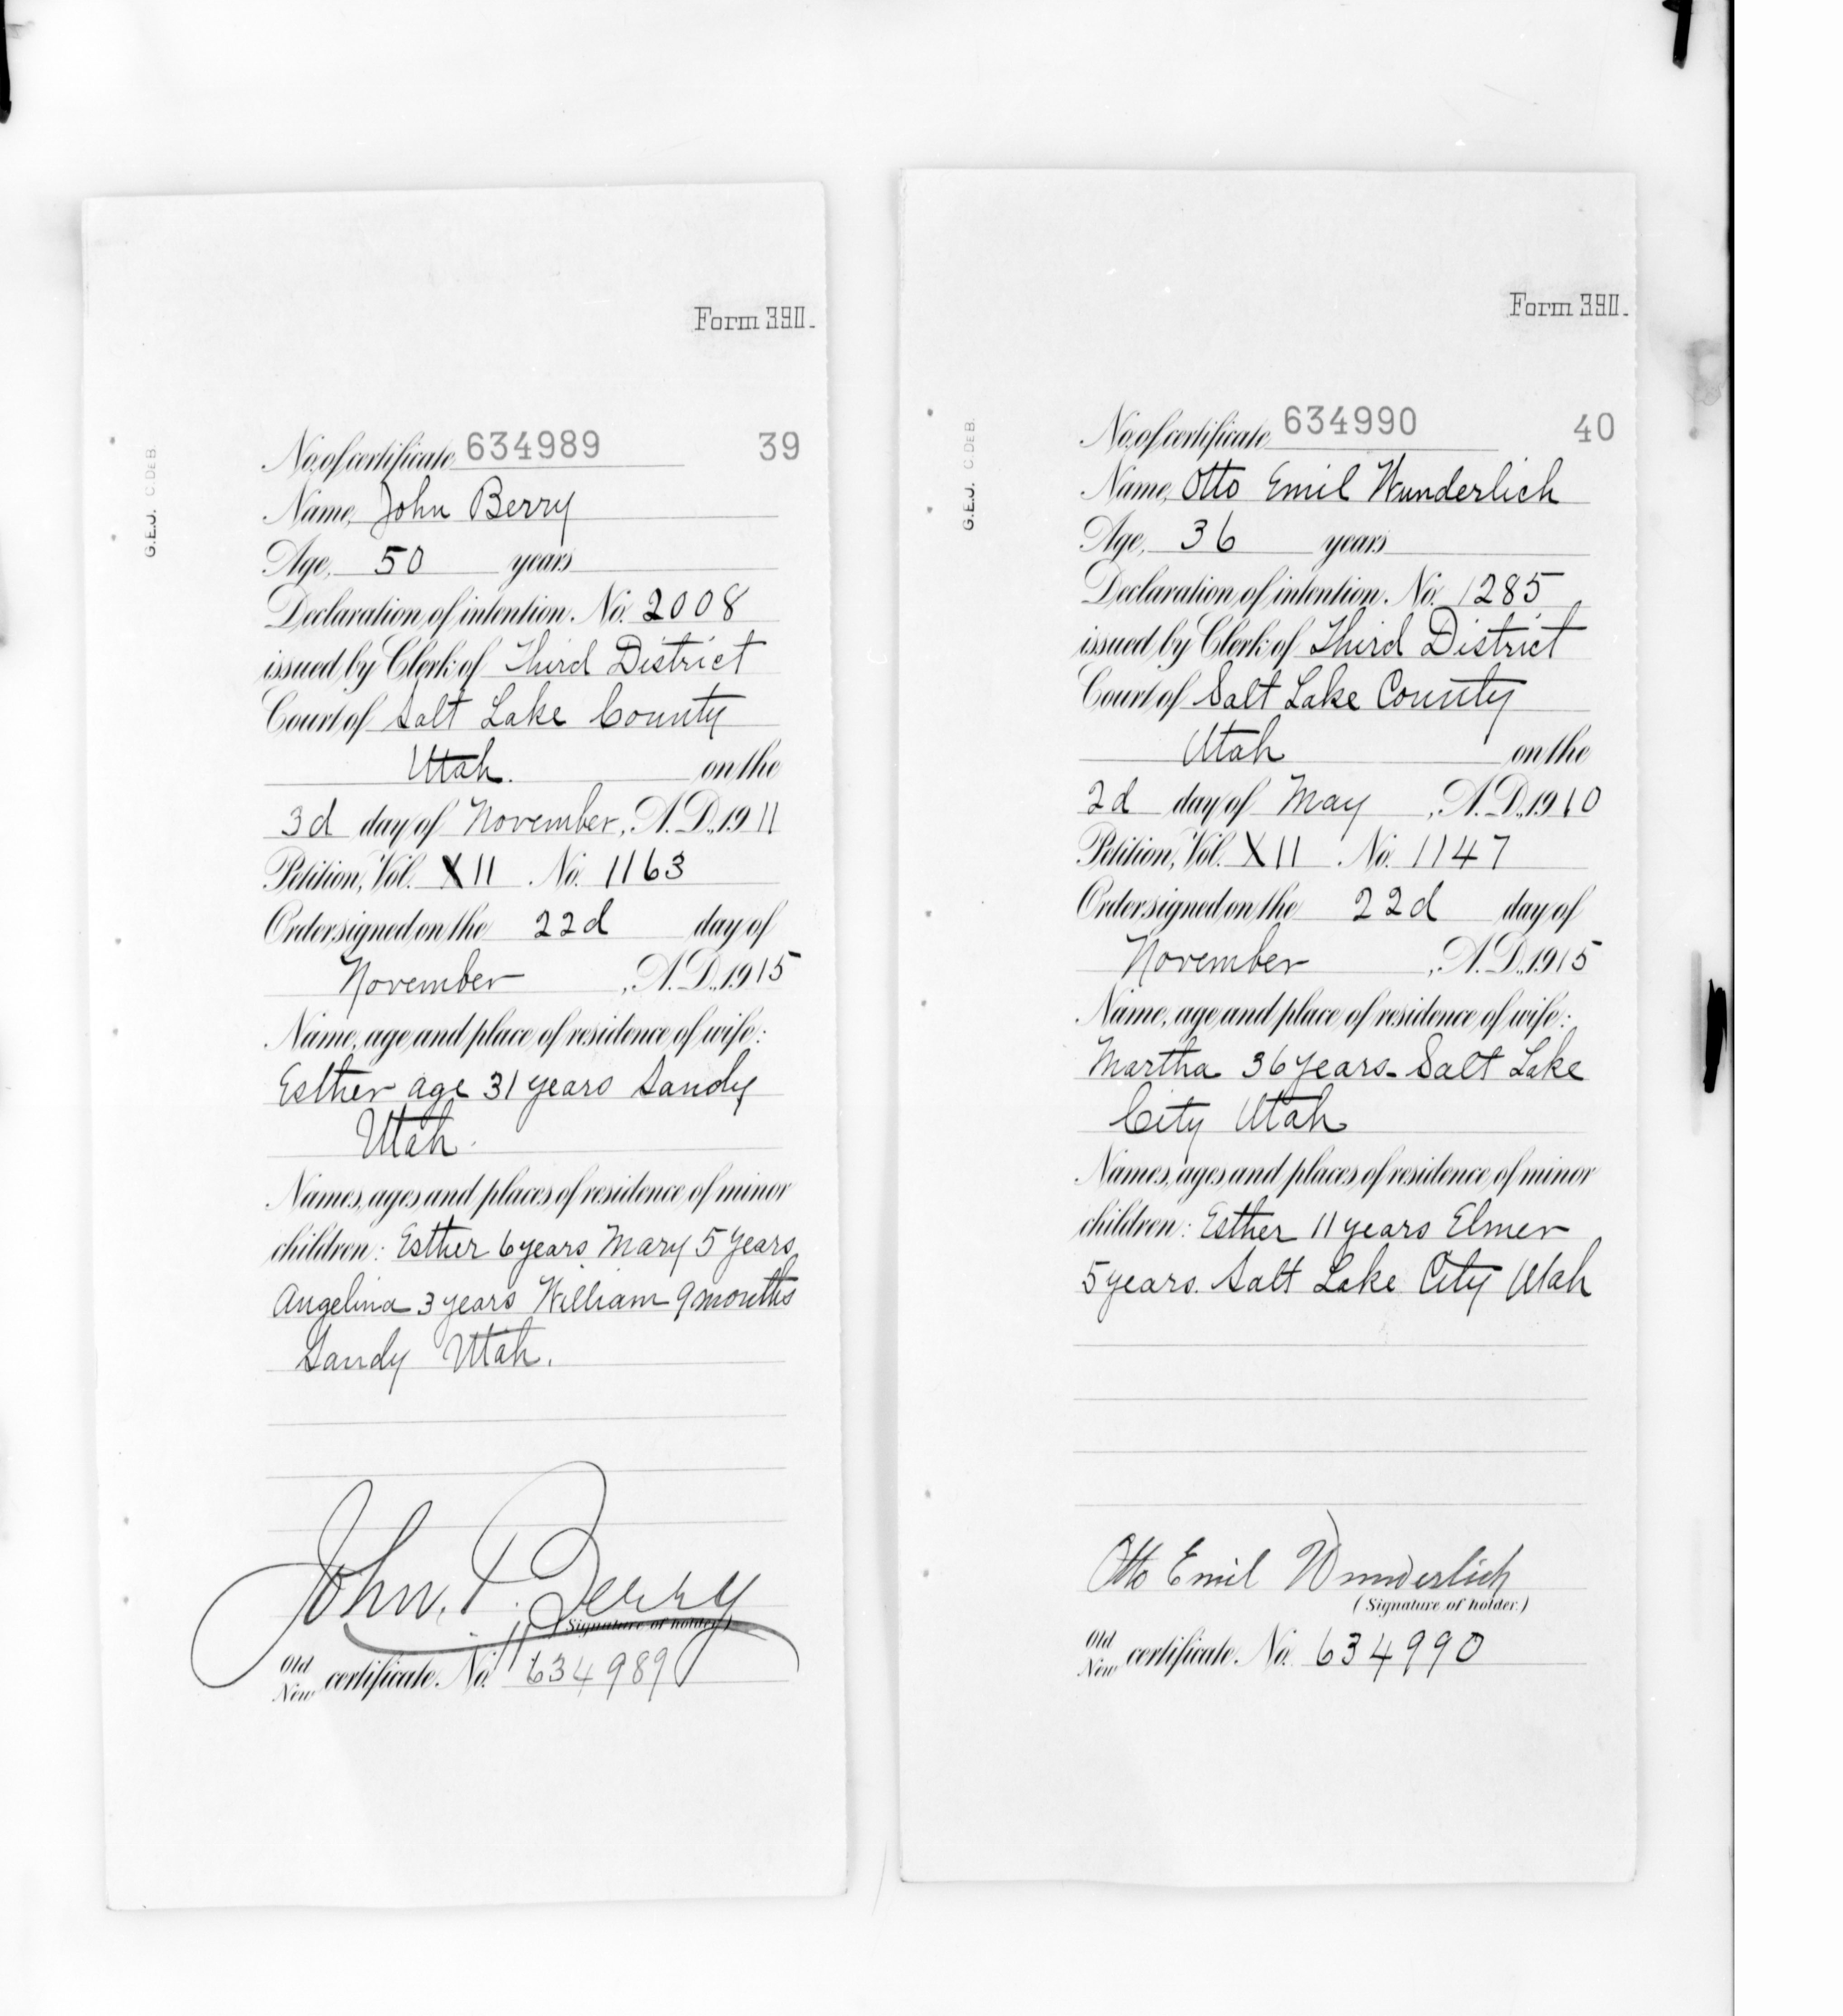 Form 390.
G.E.J. C.DEB.
No. of certificate 634989 39
Name, John Berry
Age, 50 years
Declaration of intention. No. 2008
issued by Clerk of Third District
Court of Salt Lake County
Utah. on the
3d day of November, A.D., 1911
Petition, Vol. XII No. 1163
Order signed on the 22d day of
November, A.D., 1915
Name, age and place of residence of wife:
Esther age 31 years Sandy
Utah.
Names, ages and places of residence of minor
children: Esther 6 years Mary 5 years
Angelina 3 years William 9 months
Sandy Utah.
John. Berry
(Signature of holder.)
Old
New certificate. No. 634989
Form 390.
G.E.J. C.DEB.
No. of certificate 634990 40
Name, Otto Emil Wunderlich
Age, 36 years
Declaration of intention. No. 1285
issued by Clerk of Third District
Court of Salt Lake County
Utah on the
2d day of May, A.D., 1910
Petition, Vol. XII. No. 1147
Order signed on the 22d day of
November, A.D., 1915
Name, age and place of residence of wife:
Martha 36 years - Salt Lake
City Utah
Names, ages and places of residence of minor
children: Esther 11 years Elmer
5 years. Salt Lake City Utah
Otto Emil Wunderlich
(Signature of holder.)
Old
New certificate. No. 634990